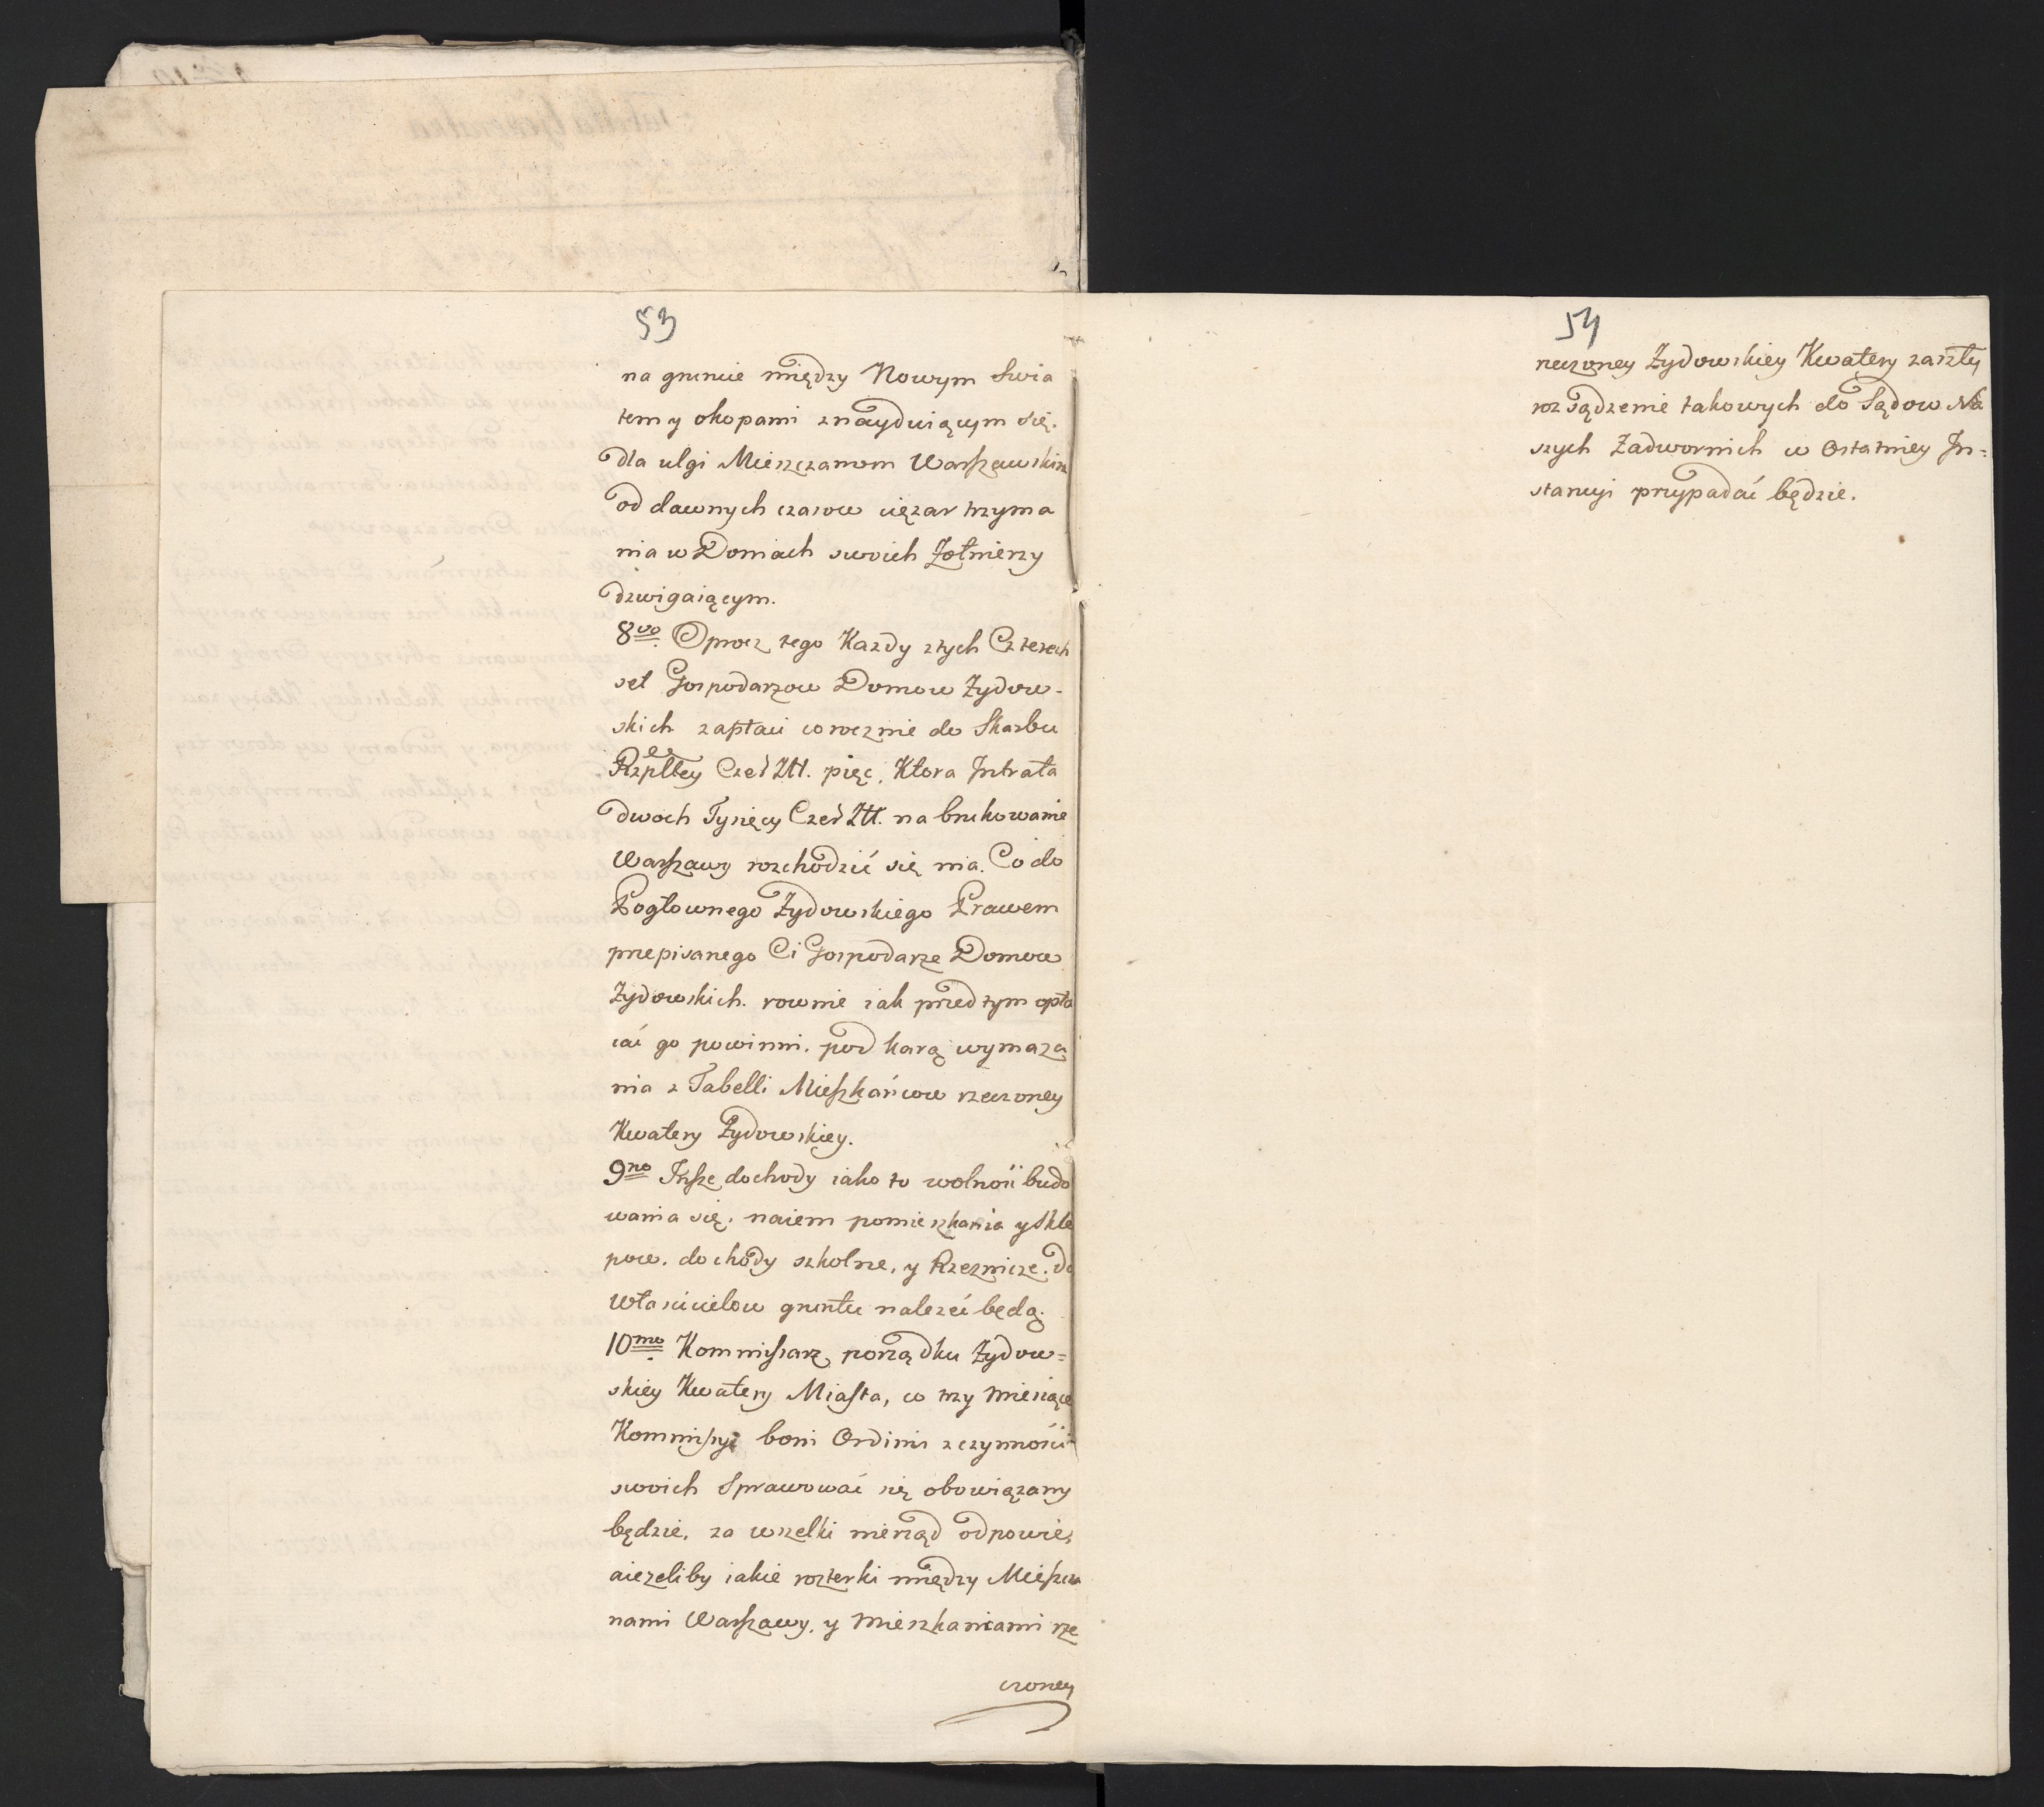 53
na gruncie między Nowym Swia
tem y okopami znayduiącym się.
dla ulgi Mieszczanom Warszawskim
od dawnych czasow cięzar trzyma
nia w Domach swoich Żołnierzy
dzwigaiącym.
8vo. Oprocz tego Kazdy z tych Czterech
set Gospodarzow Domow Żydow-
skich zapłaci corocznie do Skarbu
Rzpltey Czer Złł. pięc, Ktora Intrata
dwoch Tysięcy Czer Złł. na brukowanie
Warszawy rozchodzić się ma. Co do
Pogłownego Żydowskiego Prawem
przepisanego Ci Gospodarze Domow
Żydowskich. rownie iak przed tym opła
cać go powinni. pod karą wymaza
nia z Tabelli Mieszkańcow rzeczoney
Kwatery Żydowskiey.
9no Insze dochody iako to wolności budo
wania się. naiem pomieszkania y skle
pow. dochody szkolne, y Rzeznicze. do
właścicielow gruntu nalezeć będą.
10mo. Kommissarz porządku Żydow=
skiey Kwatery Miasta, co trzy Miesiące
Kommissyi boni Ordinis z czynności
swoich Sprawować się obowiązany
będzie. za wszelki nierząd odpowie,
aiezeliby iakie rozterki między Mieszcza
nami Warszawy. y Mieszkańcami rze
czoney
54
rzeczoney Żydowskiey Kwatery zaszły
rozsądzenie takowych do Sądow Na
szych Zadwornich w Ostatniey In=
stancyi przypadać będzie.